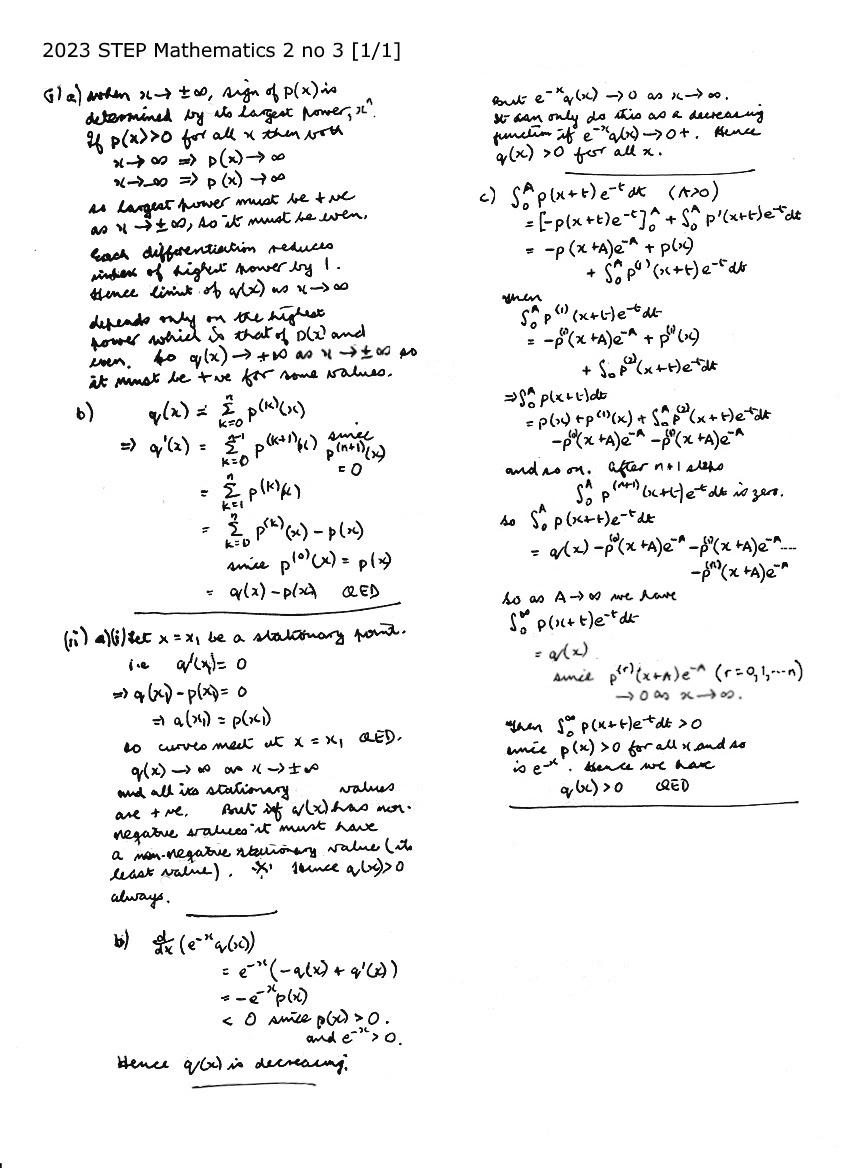 2023 STEP Mathematics 2 no 3 [1/1]
(i) a) when x → ±∞, sign of p(x) is
determined by its largest power, xⁿ.
If p(x)>0 for all x then both
x → ∞ ⇒ p(x) → ∞
x → -∞ ⇒ p(x) → ∞
so largest power must be +ve
as x → ±∞, so it must be even.
Each differentiation reduces
index of highest power by 1.
Hence limit of q(x) as x → ∞
depends only on the highest
power which is that of p(x) and
even. So q(x) → +∞ as x → ±∞ so
it must be +ve for some values.
b) q(x) = Σ_{k=0}^{n} p^{(k)}(x)
⇒ q'(x) = Σ_{k=0}^{n-1} p^{(k+1)}(x) since
p^{(n+1)}(x)
= 0
= Σ_{k=1}^{n} p^{(k)}(x)
= Σ_{k=0}^{n} p^{(k)}(x) - p(x)
since p^{(0)}(x) = p(x)
= q(x) - p(x) QED
(ii) a)(i) Let x = x₁ be a stationary point.
i.e q'(x₁) = 0
⇒ q(x₁) - p(x₁) = 0
⇒ q(x₁) = p(x₁)
so curves meet at x = x₁ QED.
q(x) → ∞ as x → ±∞
and all its stationary values
are +ve. But if q(x) has non-
negative values it must have
a non-negative stationary value (its
least value). Hence q(x)>0
always.
b) d/dx (e^{-x} q(x))
= e^{-x}(-q(x) + q'(x))
= -e^{-x} p(x)
< 0 since p(x) > 0.
and e^{-x} > 0.
Hence q(x) is decreasing.
But e^{-x} q(x) → 0 as x → ∞.
It can only do this as a decreasing
function if e^{-x} q(x) → 0+. Hence
q(x) > 0 for all x.
c) ∫₀^A p(x+t)e^{-t} dt (A>0)
= [-p(x+t)e^{-t}]₀^A + ∫₀^A p'(x+t)e^{-t} dt
= -p(x+A)e^{-A} + p(x)
+ ∫₀^A p^{(1)}(x+t)e^{-t} dt
Then
∫₀^A p^{(1)}(x+t)e^{-t} dt
= -p^{(1)}(x+A)e^{-A} + p^{(1)}(x)
+ ∫₀^A p^{(2)}(x+t)e^{-t} dt
⇒ ∫₀^A p(x+t) dt
= p(x) + p^{(1)}(x) + ∫₀^A p^{(2)}(x+t)e^{-t} dt
-p^{(0)}(x+A)e^{-A} - p^{(1)}(x+A)e^{-A}
and so on. After n+1 steps
∫₀^A p^{(n+1)}(x+t)e^{-t} dt is zero.
so ∫₀^A p(x+t)e^{-t} dt
= q(x) - p^{(0)}(x+A)e^{-A} - p^{(1)}(x+A)e^{-A} ....
-p^{(n)}(x+A)e^{-A}
So as A → ∞ we have
∫₀^∞ p(x+t)e^{-t} dt
= q(x)
since p^{(r)}(x+A)e^{-A} (r=0,1,...n)
→ 0 as x → ∞.
Then ∫₀^∞ p(x+t)e^{-t} dt > 0
since p(x) > 0 for all x and so
is e^{-x}. Hence we have
q(x) > 0 QED